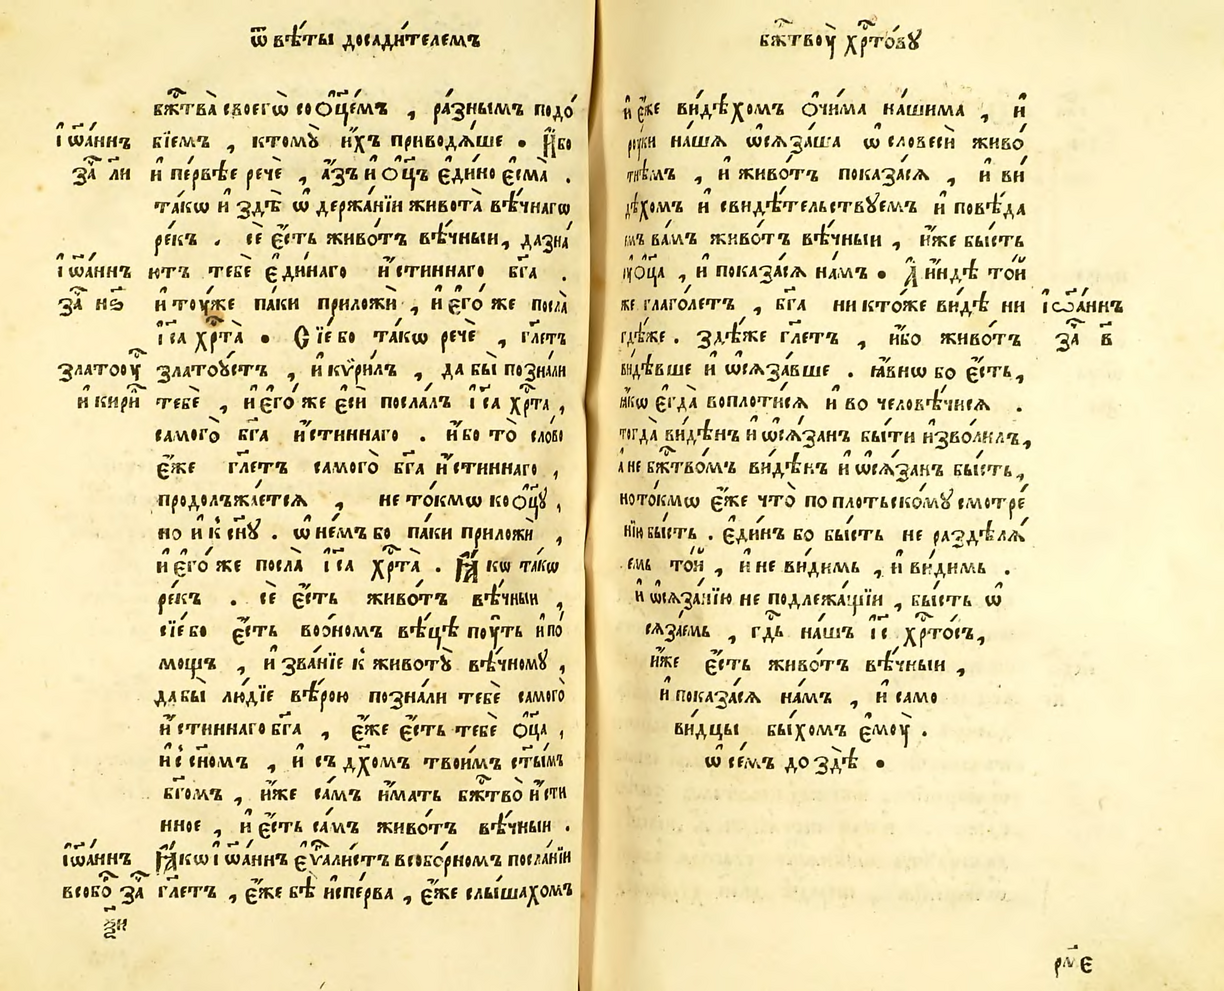 ѿвѣ́ты досади́телемъ
бж҃твꙋ̀ своегѡ̀ со ѻ҆ц҃е́мъ , ра́знымъ подо́
і҆ѡа́ннъ бїемъ , ктомꙋ̀ и҆́хъ приводѧ́ше . И҆́бо
за҄ ли и҆ пе́рвѣе речѐ , а҆́зъ и҆ ѻ҆ц҃ъ є҆ди́но є҆сма̀ .
та́кѡ и҆ здѣ̀ ѡ҆ держа́нїи живота̀ вѣ́чнагѡ
ре́къ . сѐ є҆́сть живо́тъ вѣ́чныи , да зна́
і҆ѡа́ннъ ютъ тебѐ є҆ди́наго и҆́стиннаго бг҃а .
за҄ нѕ и҆ тоу́же па́ки приложѝ , и҆ є҆го́ же посла̀
і҆с҃а хр҃та̀ . Сїе́ бо та́кѡ речѐ , гл҃етъ
златоꙋ҄ златоꙋ́стъ , и҆ кѷри́лъ , да бы̀ позна́ли
и҆ кири҄ тебѐ , и҆ є҆го́ же є҆сѝ посла́лъ і҆с҃а хр҃та̀ ,
самого̀ бг҃а и҆́стиннаго . и҆́бо то̀ сло́во
є҆́же гл҃етъ самого̀ бг҃а и҆́стиннаго ,
продолъжа́етсѧ , не то́кмѡ ко ѻ҆ц҃ꙋ̀ ,
но и҆ к сн҃ꙋ . ѡ҆ не́мъ бо па́ки приложѝ ,
и҆ є҆го́ же посла̀ і҆с҃а хр҃та̀ . Ꙗ҆́кѡ та́кѡ
ре́къ . сѐ є҆́сть живо́тъ вѣ́чныи ,
сїе́ бо є҆́сть во ѻ҆́номъ вѣ́цѣ пꙋ́ть и҆ по́
мощъ , и҆ зва́нїе к животꙋ̀ вѣ́чномꙋ ,
да бы̀ лю́дїе вѣ́рою позна́ли тебѐ самого̀
и҆́стиннаго бг҃а , є҆́же є҆́сть тебѐ ѻ҆ц҃а ,
и҆ с сн҃омъ , и҆ съ дх҃омъ твои́мъ ст҃ы́мъ
бг҃омъ , и҆́же са́мъ и҆́мать бж҃тво̀ и҆́сти
нное , и҆ є҆́сть са́мъ живо́тъ вѣ́чныи .
і҆ѡа́ннъ Ꙗ҆́кѡ і҆ѡа́ннъ є҆ѵ҃али́стъ в собо́рномъ посла́нїи
в собо҄ за҄ гл҃етъ , є҆́же бѣ̀ и҆спе́рва , є҆́же слы́шахомъ
ѯи
бж҃твꙋ̀ хр҃то́вꙋ
и҆ є҆́же ви́дѣхомъ ѻ҆чи́ма на́шима , и҆
рꙋ́ки на́шѧ ѡ҆сѧза́ша ѡ҆ словесѝ живо́
тнѣмъ , и҆ живо́тъ показа́сѧ , и҆ ви́
дѣхомъ и҆ свидѣ́тельствꙋемъ и҆ повѣ́да
емъ ва́мъ живо́тъ вѣ́чныи , и҆́же бы́сть
ꙋ҆ ѻ҆ц҃а , и҆ показа́сѧ на́мъ . А҆ и҆́ндѣ то́и
же глаго́летъ , бг҃а никто́же ви́дѣ ни і҆ѡа́ннъ
гдѣ́же . здѣ́же гл҃етъ , и҆́бо живо́тъ за҄ в
ви́дѣвше и҆ ѡ҆сѧза́вше . ꙗ҆́внѡ бо є҆́сть ,
ꙗ҆́кѡ є҆гда̀ воплоти́сѧ и҆ во человѣ́чисѧ .
тогда̀ ви́дѣнъ и҆ ѡ҆сѧ́занъ бы́ти и҆зво́лилъ ,
а҆ не бж҃тво́мъ ви́дѣнъ и҆ ѡ҆сѧ́занъ бы́сть ,
но то́кмѡ є҆́же что̀ по пло́тьскомꙋ смотре́
нїю бы́сть . є҆ди́нъ бо бы́сть не раздѣлѧ́
емь то́и , и҆ не ви́димь , и҆ ви́димь .
и҆ ѡ҆сѧза́нїю не подлежа́щїи , бы́сть ѡ҆
сѧза́емь , гд҃ь на́шъ і҆с҃ хр҃то́съ ,
и҆́же є҆́сть живо́тъ вѣ́чныи ,
и҆ показа́сѧ на́мъ , и҆ само
ви́дцы бы́хомъ є҆мꙋ̀ .
ѡ҆ се́мъ до здѣ̀ .
рм҃є